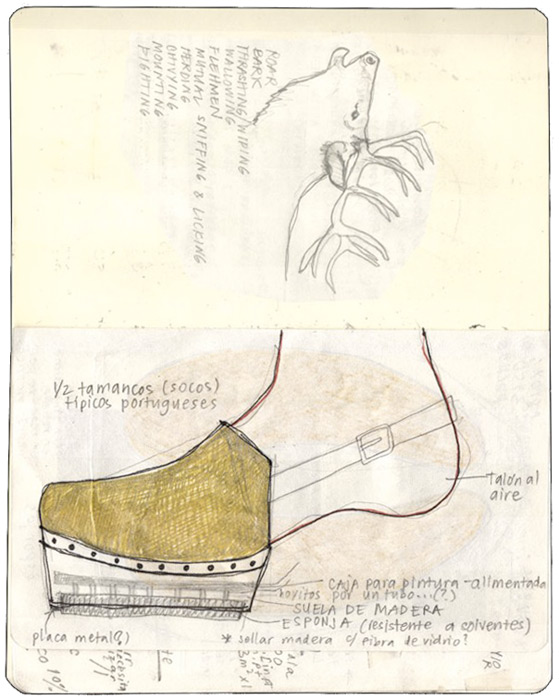 ROAR
BARK
THRASHING/WIPING
WALLOWING
FLEHMEN
MUTUAL SNIFFING & LICKING
TENDING
CHIVYING
MOUNTING
FIGHTING
1/2 tamancos (socos)
típicos portugueses
Talón al
aire
CAJA para pintura - alimentada
hoyitos por un tubo...(?)
SUELA DE MADERA
ESPONJA (resistente a solventes)
placa metal(?)
* sellar madera c/ fibra de vidrio?